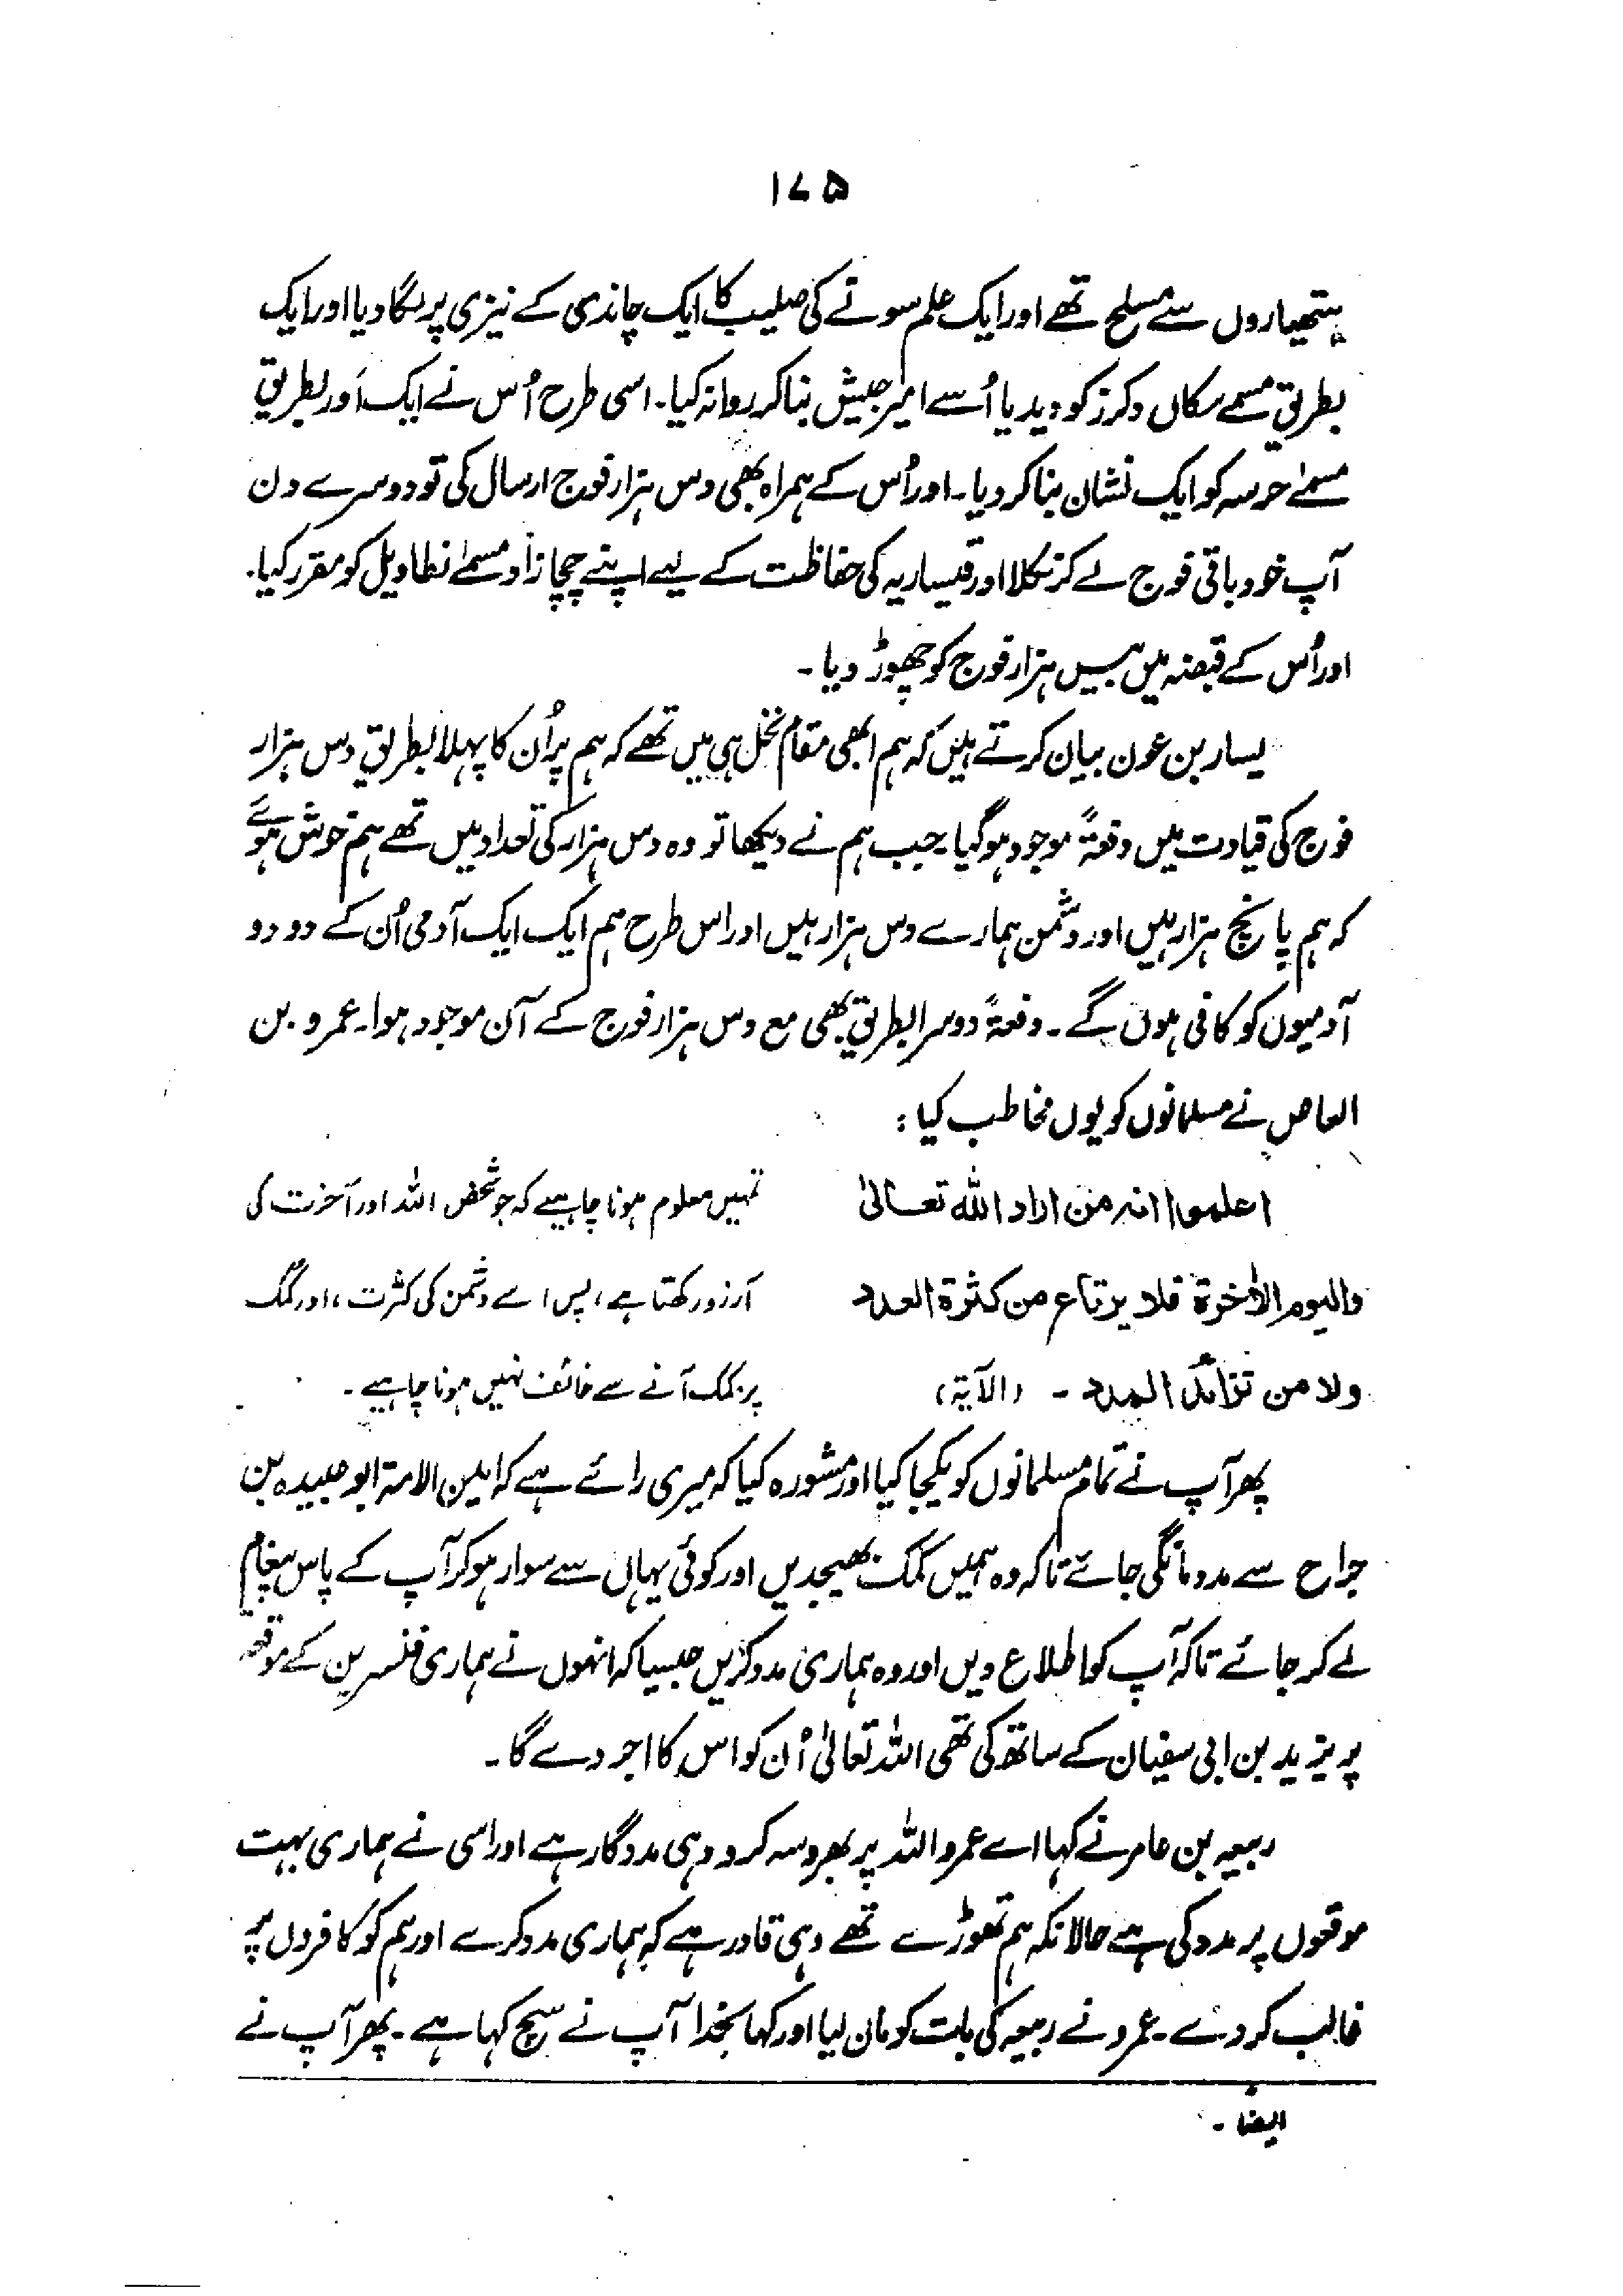 ۱۷۵
ہتھیاروں سے مسلح تھے اور ایک علم سونے کی صلیب کا ایک چاندی کے نیزی پر لگا دیا اور ایک
بطریق مسمے سکاں دکرز کو دیدیا اُسے امیر جیش بنا کر روانہ کیا۔ اسی طرح اُس نے ایک اَور بطریق
مسمےٰ حرسہ کو ایک نشان بنا کر دیا۔ اور اُس کے ہمراہ بھی دس ہزار فوج ارسال کی تو دوسرے دن
آپ خود باقی فوج لے کر نکلا اور قیساریہ کی حفاظت کے لیے اپنے چچازاد مسمےٰ نطاویل کو مقرر کیا۔
اور اُس کے قبضہ میں بیس ہزار فوج کو چھوڑ دیا۔
یسار بن عون بیان کرتے ہیں کہ ہم ابھی مقام نخل ہی میں تھے کہ ہم پر اُن کا پہلا بطریق دس ہزار
فوج کی قیادت میں دفعۃً موجود ہو گیا۔ جب ہم نے دیکھا تو وہ دس ہزار کی تعداد میں تھے ہم خوش ہوئے
کہ ہم پانچ ہزار ہیں اور دشمن ہمارے دس ہزار ہیں اور اس طرح ہم ایک ایک آدمی اُن کے دو دو
آدمیوں کو کافی ہوں گے۔ دفعۃً دوسرا بطریق بھی مع دس ہزار فوج کے آن موجود ہوا۔ عمرو بن
العاص نے مسلمانوں کو یوں مخاطب کیا :
اعلموا انہ من اراد اللہ تعالیٰ
والیوم الاٰخرۃ فلا یرتاع من کثرۃ العدد
ولا من تزائد المدد ۔ (الآیۃ)
تمہیں معلوم ہونا چاہیے کہ جو شخص اللہ اور آخرت کی
آرزو رکھتا ہے، پس اسے دشمن کی کثرت، اور کمک
پر کمک آنے سے خائف نہیں ہونا چاہیے۔
پھر آپ نے تمام مسلمانوں کو یکجا کیا اور مشورہ کیا کہ میری رائے ہے کہ امین الامۃ ابو عبیدہ بن
جراح سے مدد مانگی جائے تاکہ وہ ہمیں کمک بھیجدیں اور کوئی یہاں سے سوار ہو کر آپ کے پاس پیغام
لے کر جائے تاکہ آپ کو اطلاع دیں اور وہ ہماری مدد کریں جیسیا کہ انہوں نے ہماری قنسرین کے موقعہ
پر یزید بن ابی سفیان کے ساتھ کی تھی اللہ تعالیٰ اُن کو اس کا اجر دے گا۔
ربیعہ بن عامر نے کہا اے عمرو اللہ پر بھروسہ کرو وہی مددگار ہے اور اسی نے ہماری بہت
موقعوں پر مدد کی ہے حالانکہ ہم تھوڑے تھے وہی قادر ہے کہ ہماری مدد کرے اور ہم کو کافروں پر
غالب کر دے۔ عمرو نے ربیعہ کی بات کو مان لیا اور کہا بخدا آپ نے سچ کہا ہے۔ پھر آپ نے
ایضاً ۔